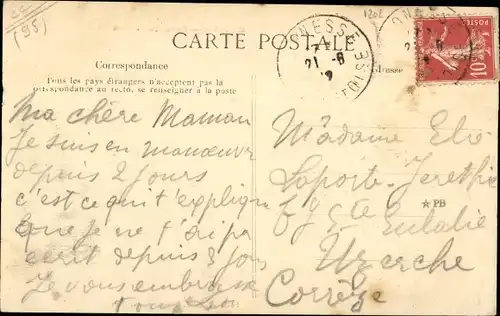 (95)
CARTE POSTALE
Correspondance
Tous les pays étrangers n'acceptent pas la
correspondance au recto, se renseigner à la poste
Adresse
10
21 -8
OISE
ma chère Maman
Je suis en manœuvre
depuis 2 jours
c'est ce qui t'explique
que je ne t'ai pas
écrit depuis 8 jours
Je vous embrasse
Madame
Laporte
f g Ste Eulalie
★ PB
Uzerche
Corrèze